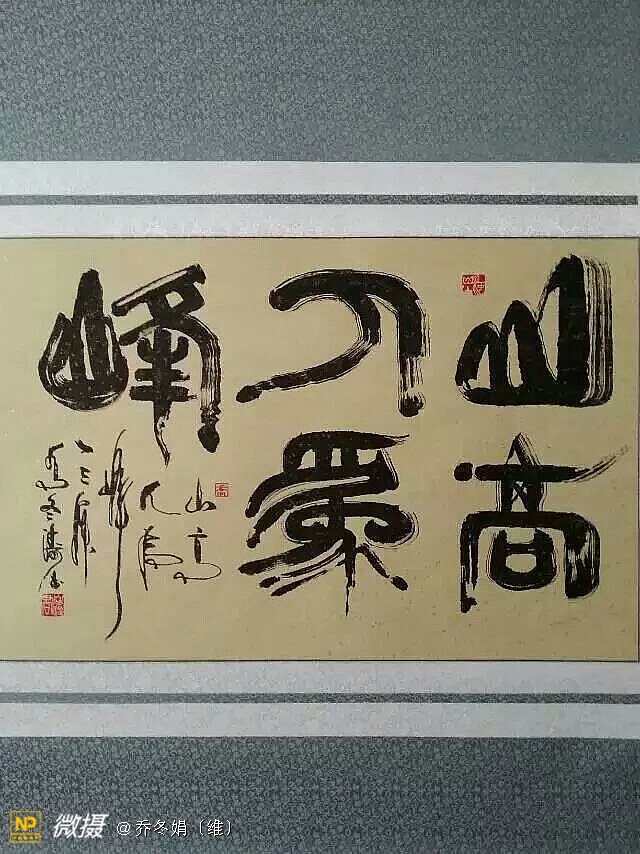 山高
人為
峰
山高
人為
峰
NP 微摄 @乔冬娟〔维〕